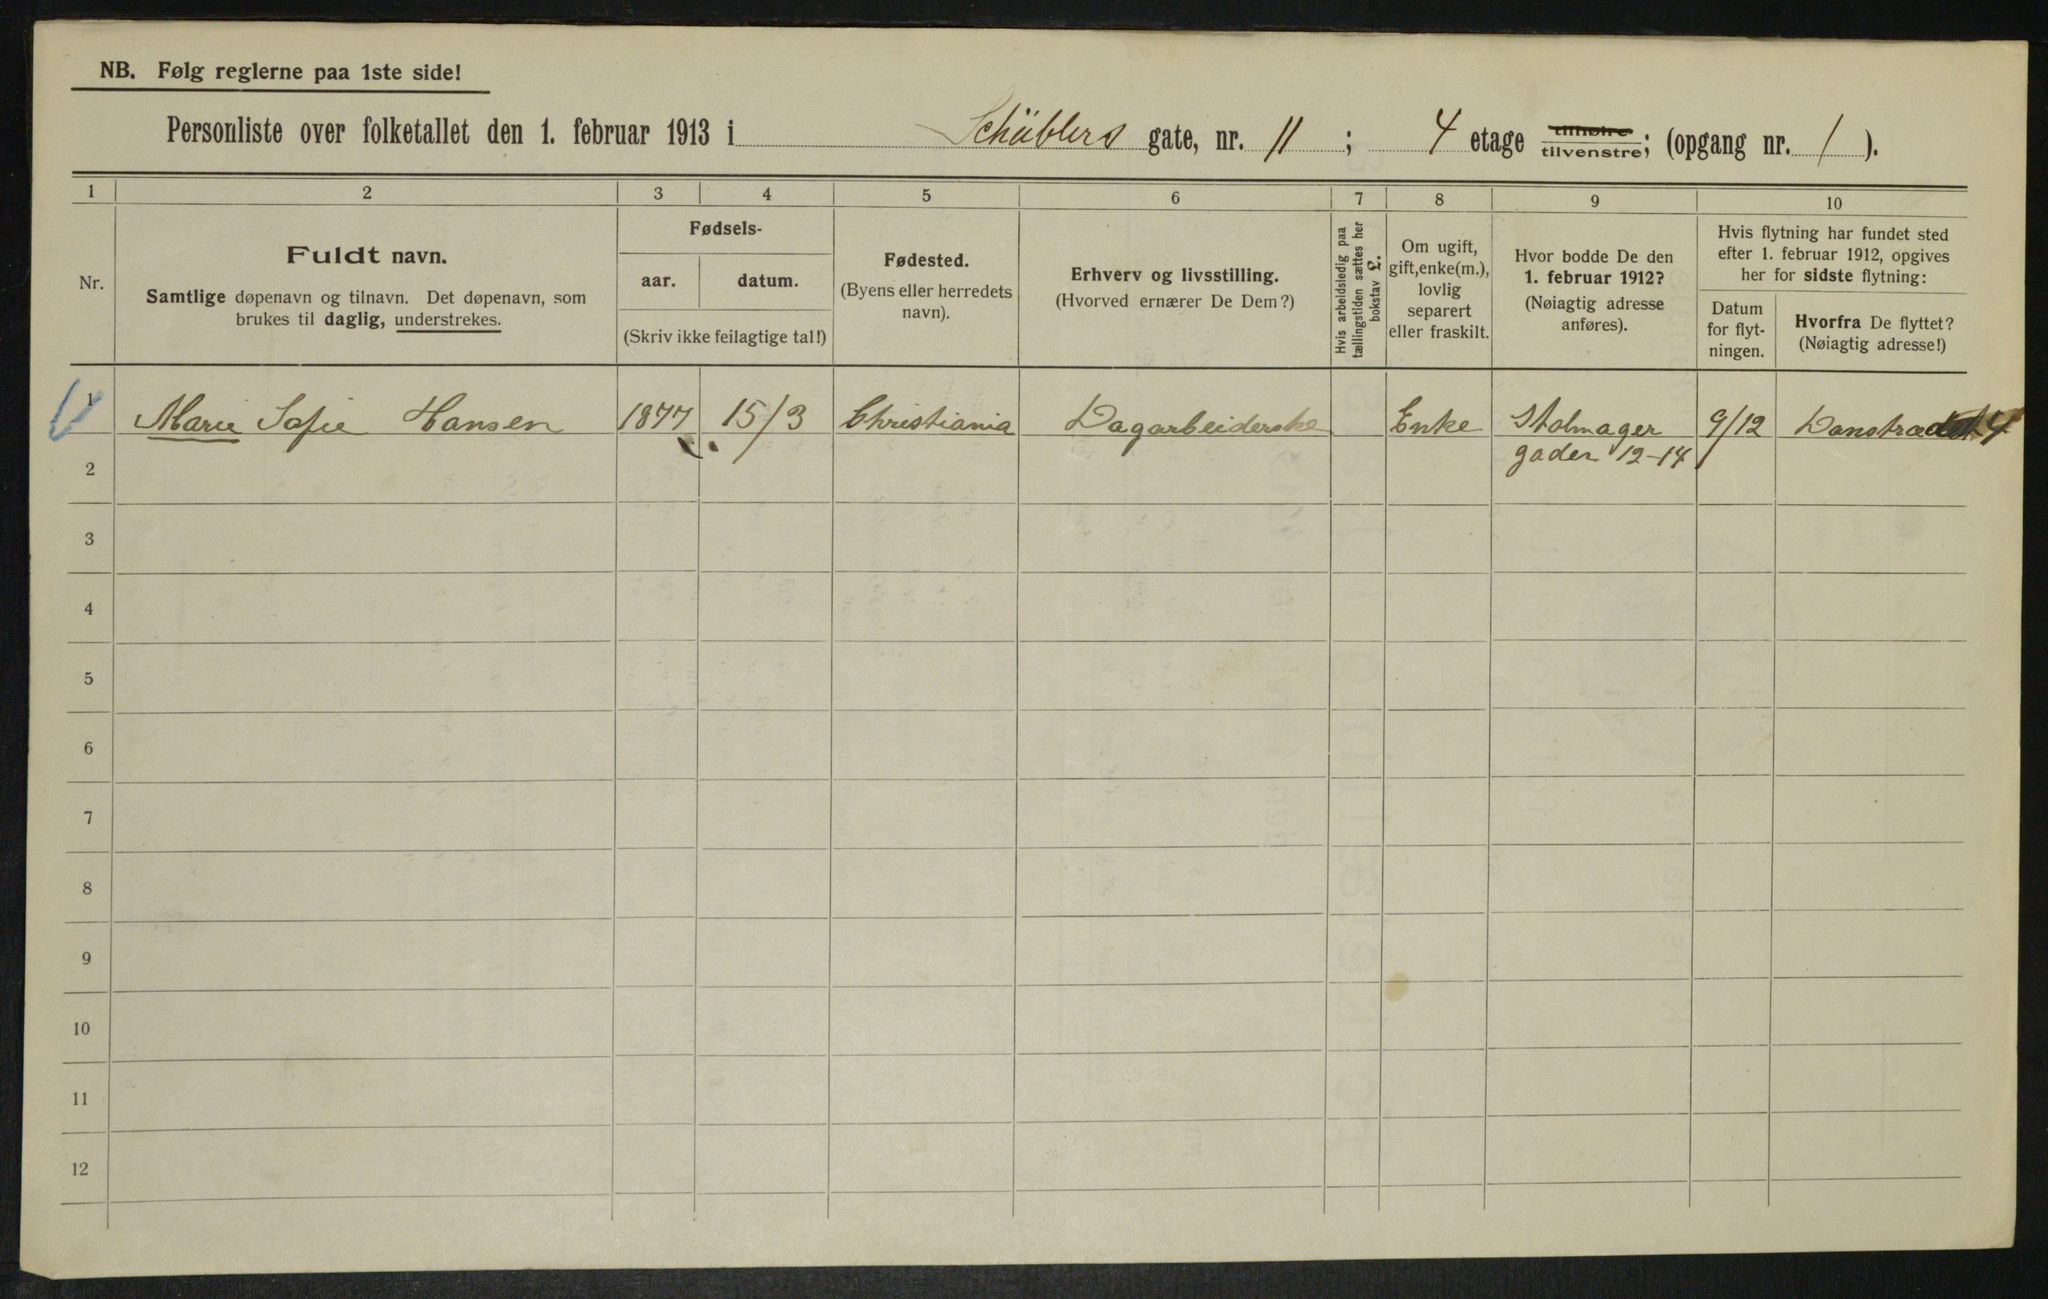 NB. Følg reglerne paa 1ste side!
Personliste over folketallet den 1. februar 1913 i Schüblers gate, nr. 11 ; 4 etage tilhøire tilvenstre; (opgang nr. 1 ).
1 2 3 4 5 6 7 8 9 10
Nr.
Fuldt navn.
Samtlige døpenavn og tilnavn. Det døpenavn, som
brukes til daglig, understrekes.
Fødsels-
aar. datum.
(Skriv ikke feilagtige tal!)
Fødested.
(Byens eller herredets
navn).
Erhverv og livsstilling.
(Hvorved ernærer De Dem?)
Hvis arbeidsledig paa
tællingstiden sættes her
bokstav L.
Om ugift,
gift, enke(m.),
lovlig
separert
eller fraskilt.
Hvor bodde De den
1. februar 1912?
(Nøiagtig adresse
anføres).
Hvis flytning har fundet sted
efter 1. februar 1912, opgives
her for sidste flytning:
Datum
for flyt-
ningen.
Hvorfra De flyttet?
(Nøiagtig adresse!)
1 Marie Sofie Hansen 1877 15/3 Christiania Dagarbeiderske Enke Stolmager 9/12
gaden 12-14
2
3
4
5
6
7
8
9
10
11
12